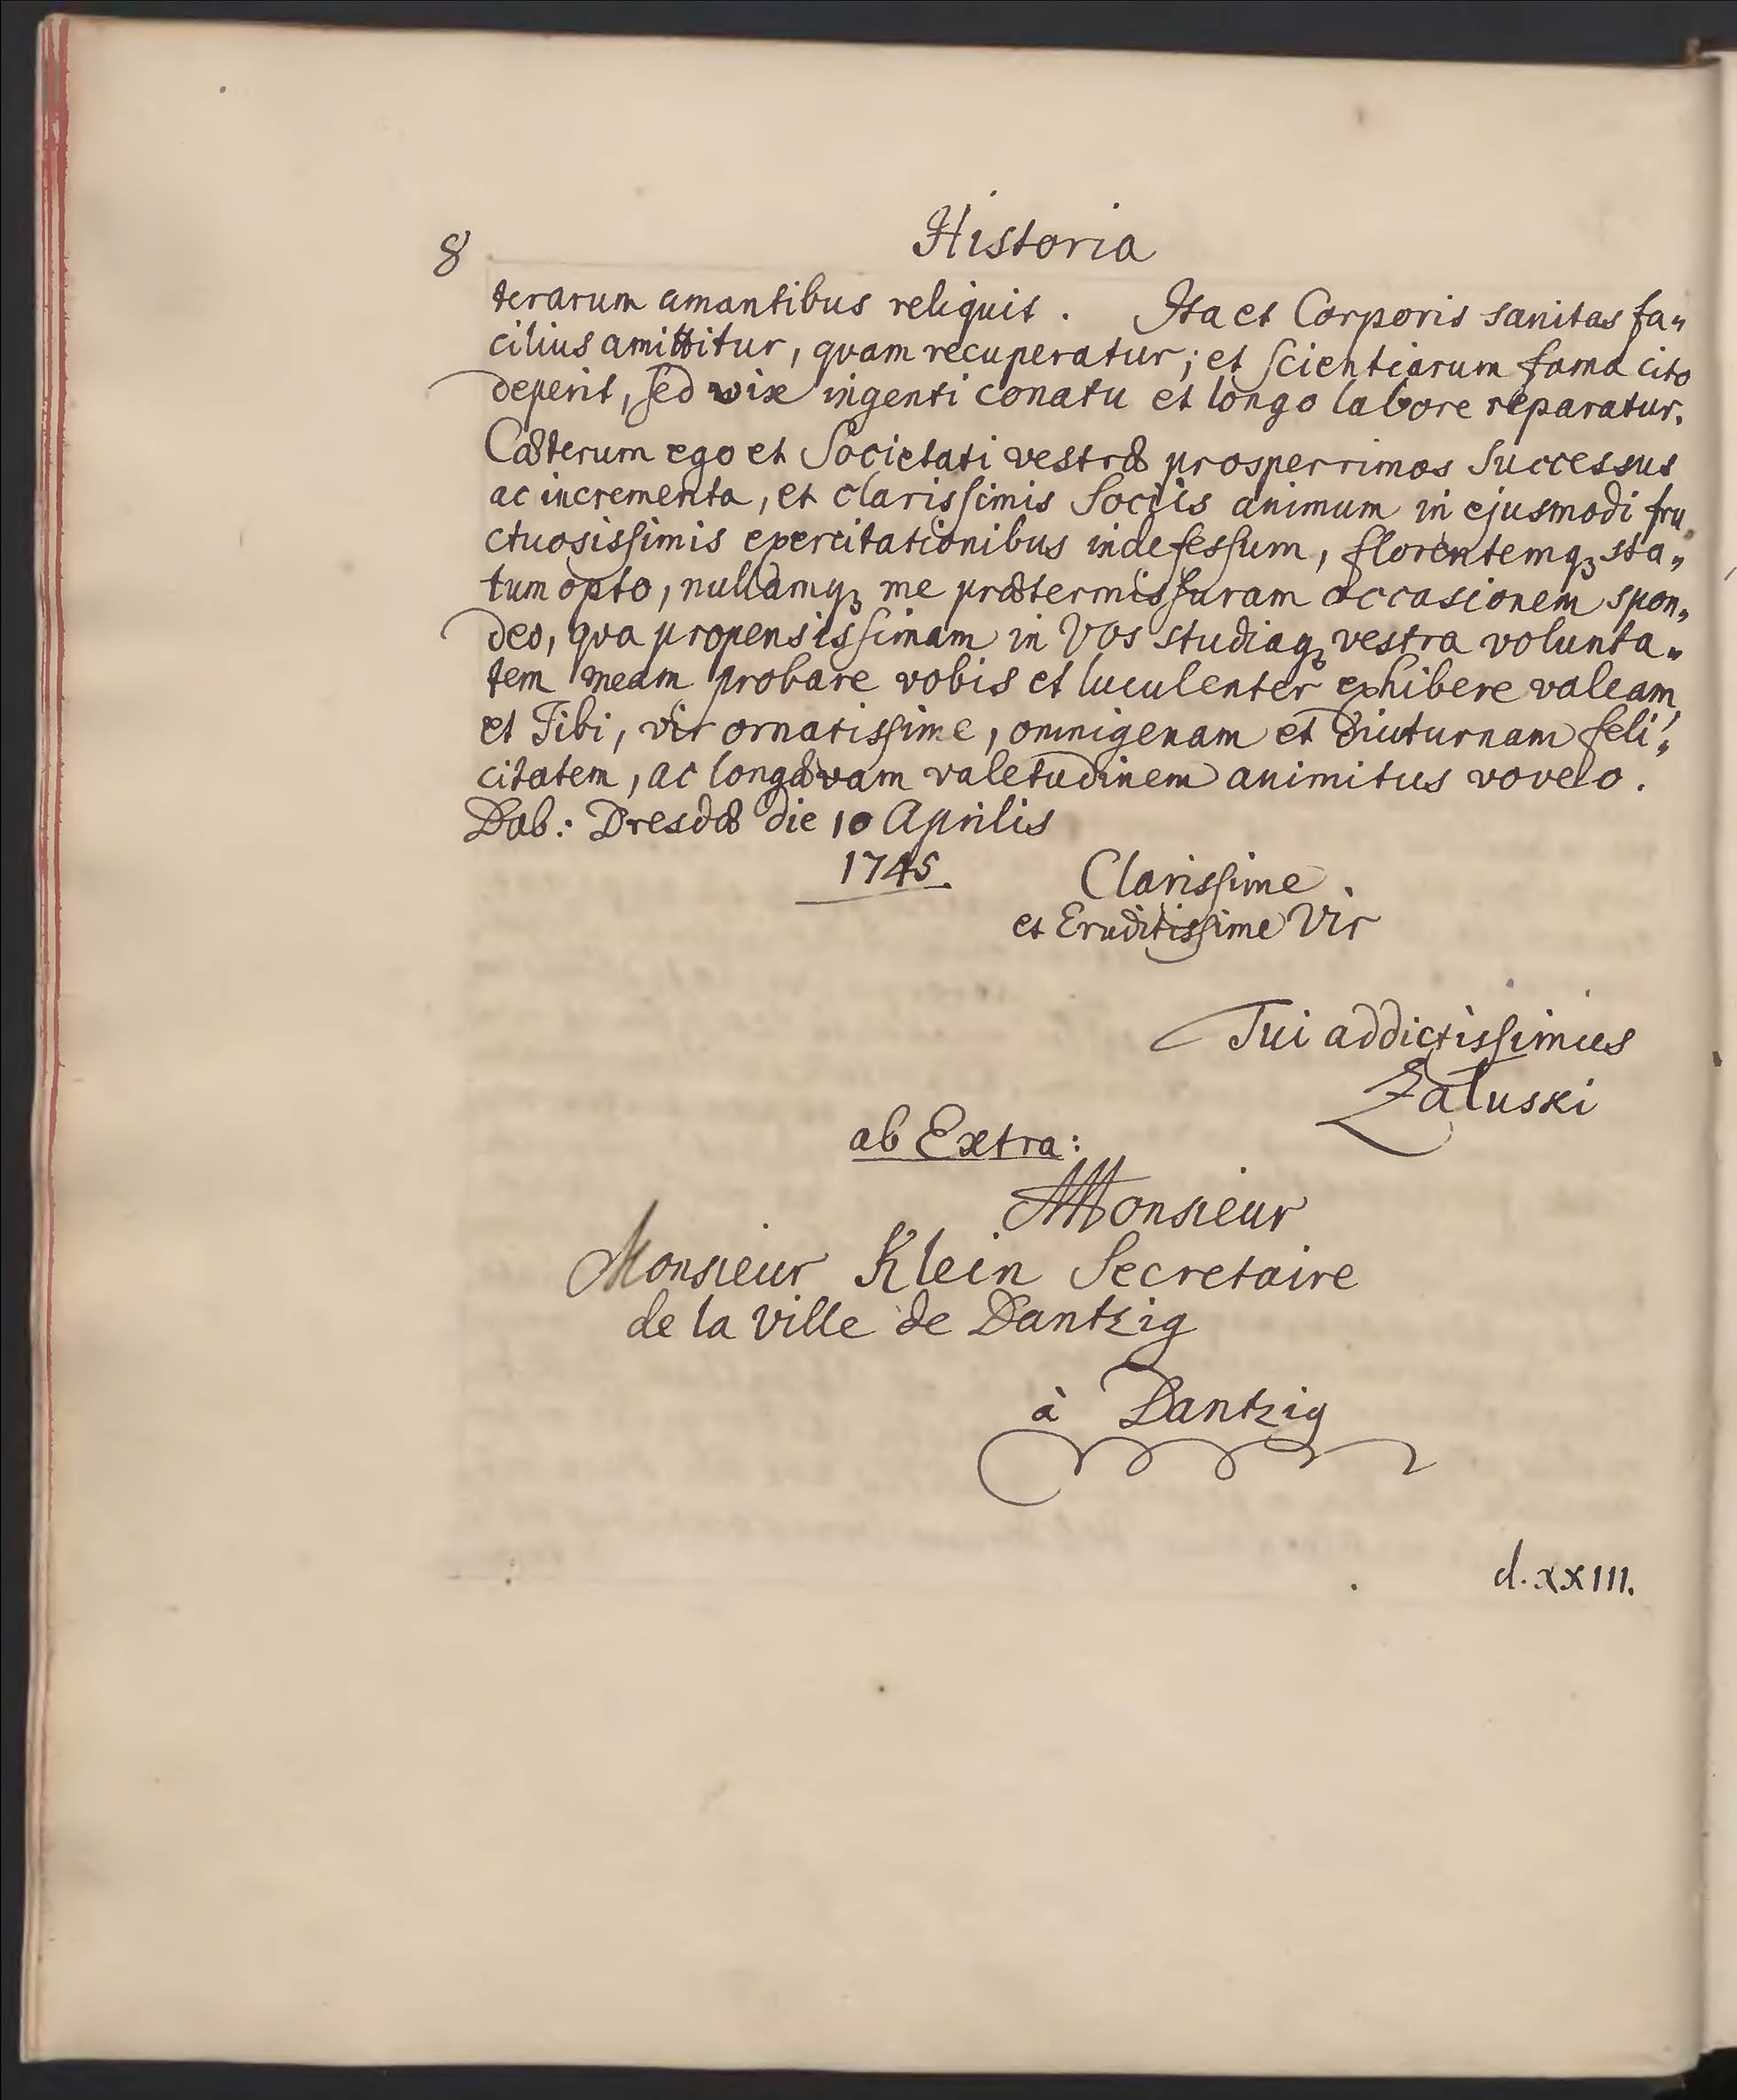 8 Historia
terarum amantibus reliquit. Ita et Corporis sanitas fa„
cilius amittitur, quam recuperatur; et scientiarum fama cito
deperit, sed vix ingenti conatu et longo labore reparatur.
Cæterum ego et Societati vestræ prosperrimos Successus
ac incrementa, et clarissimis Sociis animum in ejusmodi fru„
ctuosissimis exercitationibus indefessum, florentemq₃ sta„
tum opto, nullamq₃ me prætermissuram occasionem spon„
deo, qva propensissimam in Vos studiaq₃ vestra volunta„
tem meam probare vobis et luculenter exhibere valeam,
et Tibi, vir ornatissime, omnigenam et diuturnam feli„
citatem, ac longævam valetudinem animitus voveo.
Dab: Dresdæ die 10 Aprilis
1745.
Clarissime
et Eruditissime Vir
Tui addictissimus
Załuski
ab Extra:
Monsieur
Monsieur Klein Secretaire
de la Ville de Dantzig
à Dantzig
d. XXIII.